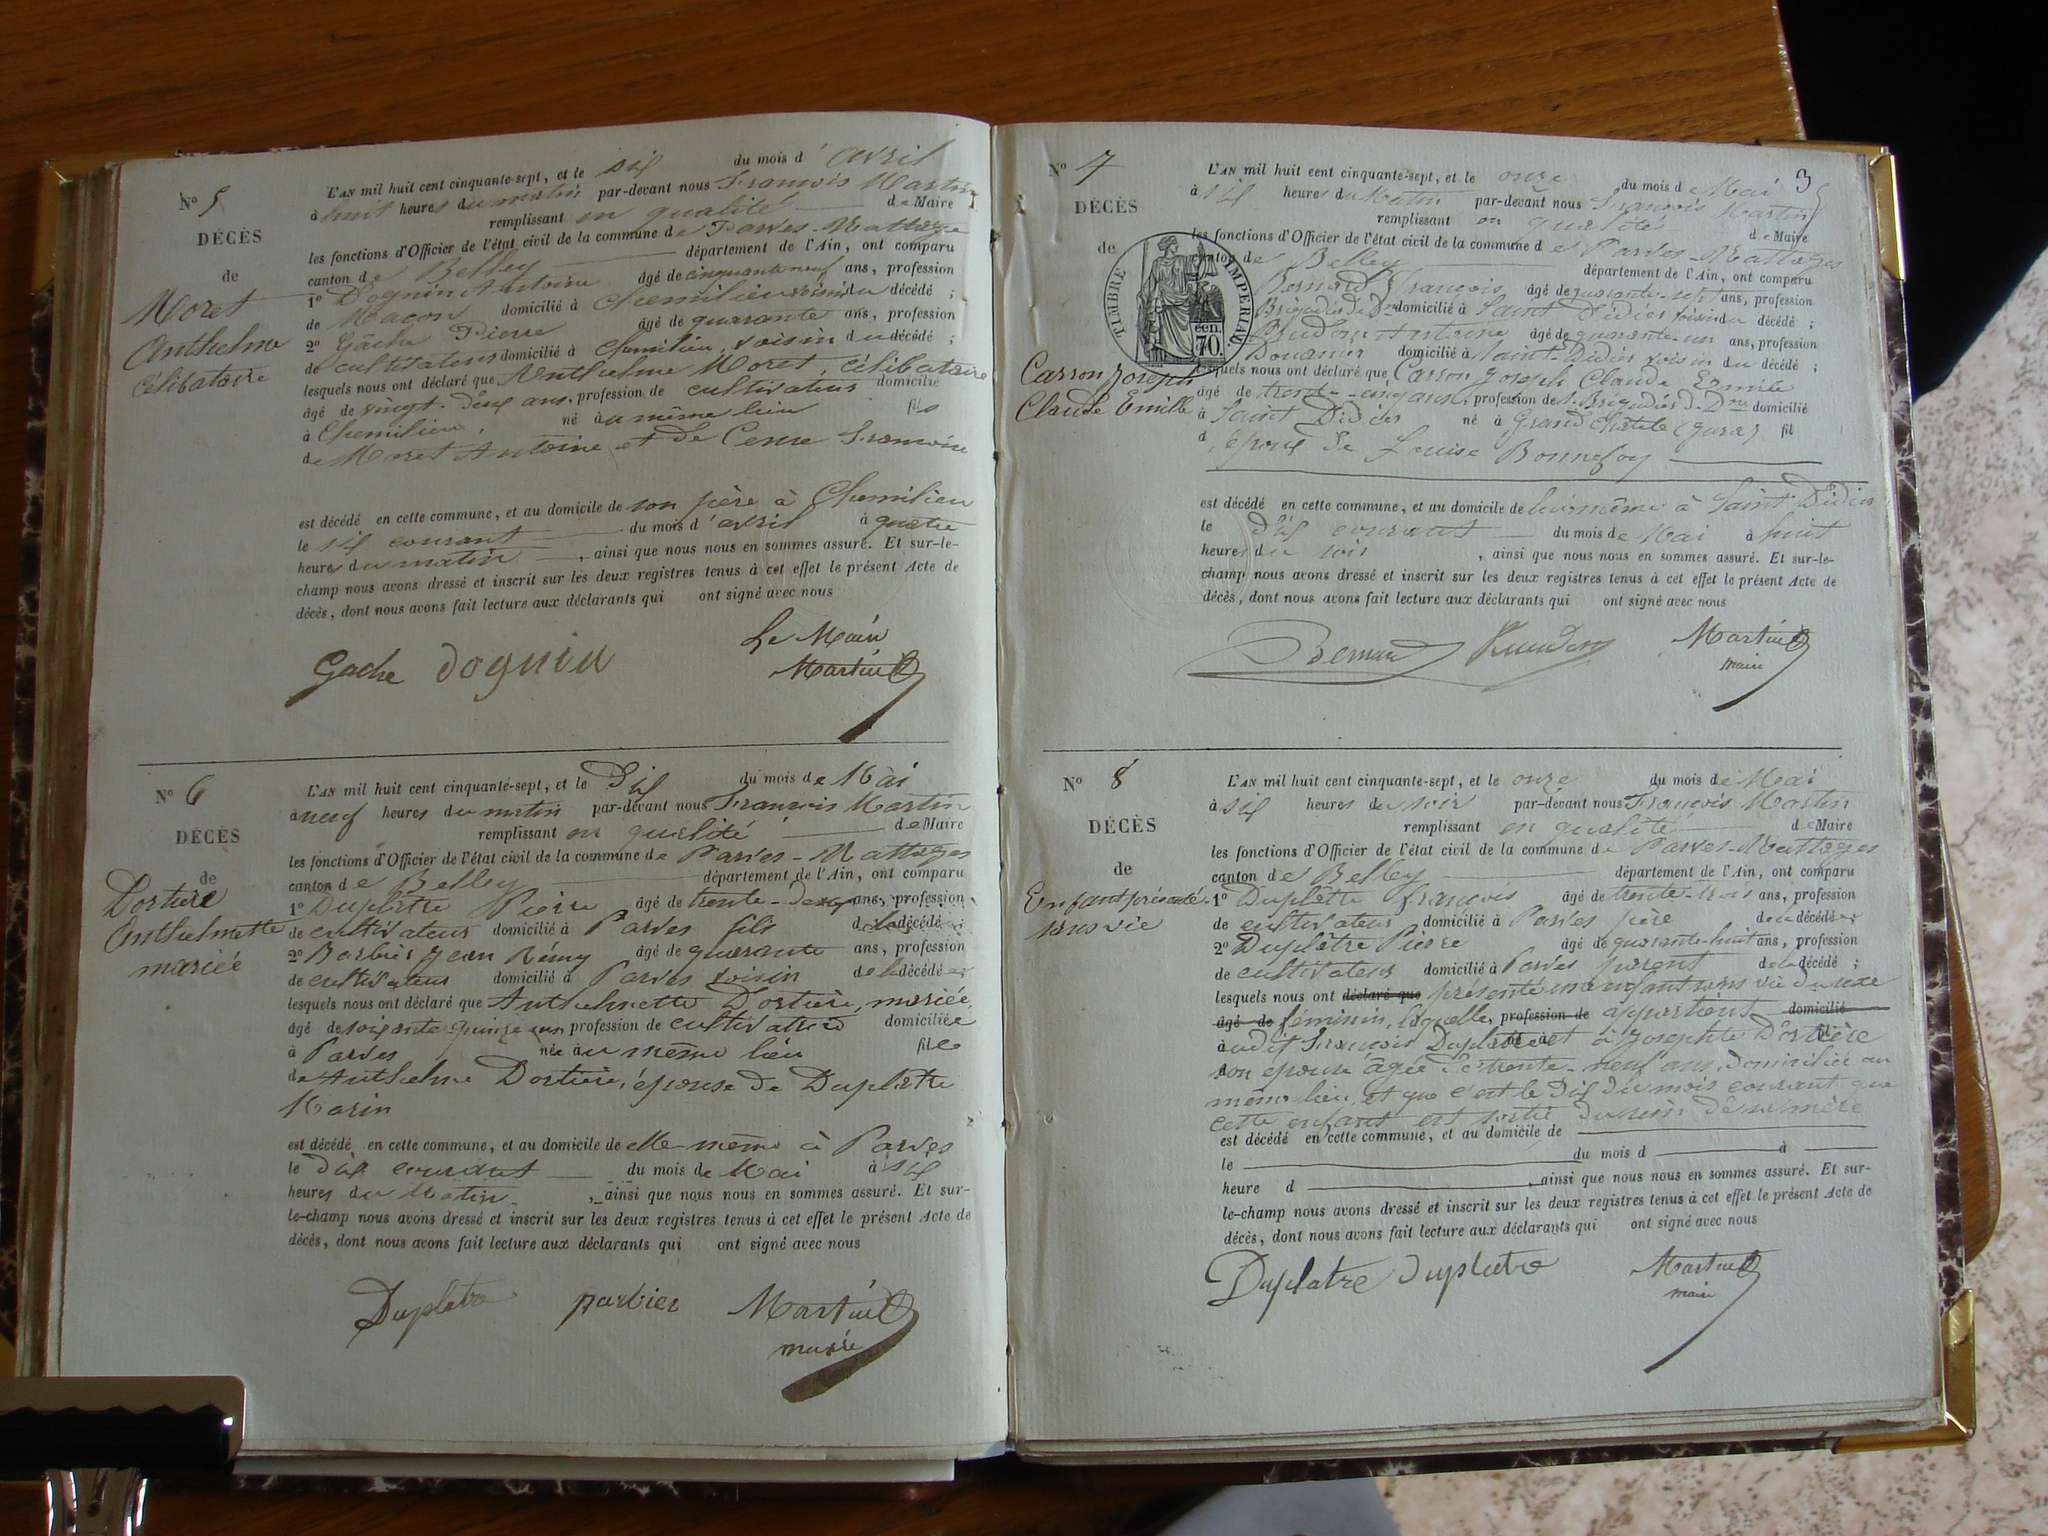 N° 5
DÉCÈS
de
Moret
Anthelme
célibataire
L'AN mil huit cent cinquante-sept, et le six du mois d'avril
à huit heures du matin par-devant nous François Martin
remplissant en qualité de Maire
les fonctions d'Officier de l'état civil de la commune de Parves-Nattages
canton de Belley département de l'Ain, ont comparu
1° Dognin Antoine âgé de cinquante neuf ans, profession
de Maçon domicilié à Chemilieu voisin du décédé ;
2° Gâche Pierre âgé de quarante ans, profession
de cultivateur domicilié à Chemilieu, voisin du décédé ;
lesquels nous ont déclaré que Anthelme Moret, célibataire
âgé de vingt-deux ans, profession de cultivateur domicilié
à Chemilieu, né au même lieu fils
de Moret Antoine et de Françoise
est décédé en cette commune, et au domicile de son père à Chemilieu
le six courant du mois d'avril à quatre
heures du matin, ainsi que nous nous en sommes assuré. Et sur-le-
champ nous avons dressé et inscrit sur les deux registres tenus à cet effet le présent Acte de
décès, dont nous avons fait lecture aux déclarants qui ont signé avec nous
Le Maire
Gache Dognin Martin
N° 6
DÉCÈS
de
Dortière
Anthelmette
mariée
L'AN mil huit cent cinquante-sept, et le Dix du mois de Mai
à neuf heures du matin par-devant nous François Martin
remplissant en qualité de Maire
les fonctions d'Officier de l'état civil de la commune de Parves-Nattages
canton de Belley département de l'Ain, ont comparu
1° Duplâtre Pierre âgé de trente- ans, profession
de cultivateur domicilié à Parves fils de la décédée ;
2° Barbier Jean Rémy âgé de quarante ans, profession
de cultivateur domicilié à Parves voisin de la décédée
lesquels nous ont déclaré que Anthelmette Dortière, mariée,
âgé de soixante quinze ans profession de cultivatrice domiciliée
à Parves née au même lieu fille
de Anthelme Dortière, épouse de Duplâtre
Marin
est décédé en cette commune, et au domicile de elle-même à Parves
le dix courant du mois de Mai à six
heures du Matin, ainsi que nous nous en sommes assuré. Et sur-
le-champ nous avons dressé et inscrit sur les deux registres tenus à cet effet le présent Acte de
décès, dont nous avons fait lecture aux déclarants qui ont signé avec nous
Duplatre parbier Martin
maire
3
N° 7
DÉCÈS
de
TIMBRE IMPERIAL
cen.
70.
Carron Joseph
Claude Emille
L'AN mil huit cent cinquante-sept, et le onze du mois de Mai
à six heures du Matin par-devant nous François Martin
remplissant en qualité de Maire
les fonctions d'Officier de l'état civil de la commune de Parves-Nattages
canton de Belley département de l'Ain, ont comparu
Bernard François âgé de quarante-sept ans, profession
Brigadier de domicilié à Saint Didier voisin du décédé ;
Antoine âgé de quarante-un ans, profession
Douanier domicilié à Saint-Didier voisin du décédé ;
lesquels nous ont déclaré que Carron Joseph Claude Emile
âgé de trente-cinq ans, profession de S. Brigadier de Dnes domicilié
à Saint Didier né à Grand Châtele (Jura) fil
d époux de Louise Bonnefoy
est décédé en cette commune, et au domicile de lui-même à Saint Didier
le dix courant du mois de Mai à huit
heures du soir, ainsi que nous nous en sommes assuré. Et sur-le-
champ nous avons dressé et inscrit sur les deux registres tenus à cet effet le présent Acte de
décès, dont nous avons fait lecture aux déclarants qui ont signé avec nous
Bernard Martin
maire
N° 8
DÉCÈS
de
Enfant présenté
sans vie
L'AN mil huit cent cinquante-sept, et le onze du mois de Mai
à six heures du soir par-devant nous François Martin
remplissant en qualité de Maire
les fonctions d'Officier de l'état civil de la commune de Parves-Nattages
canton de Belley département de l'Ain, ont comparu
1° Duplâtre François âgé de trente-trois ans, profession
de cultivateur domicilié à Parves père de la décédée
2° Duplâtre Pierre âgé de quarante-huit ans, profession
de cultivateur domicilié à Parves parent de la décédée ;
lesquels nous ont déclaré que présenté un enfant sans vie du sexe
âgé de féminin, laquelle, profession de appartient domicilié
audit François Duplâtre et à Josephte Dortière
son épouse âgée de trente-neuf ans, domiciliée au
même lieu, et que c'est le Dix du mois courant que
cette enfant est sortie du sein de sa mère
est décédé en cette commune, et au domicile de
le du mois d à
heure d, ainsi que nous nous en sommes assuré. Et sur-
le-champ nous avons dressé et inscrit sur les deux registres tenus à cet effet le présent Acte de
décès, dont nous avons fait lecture aux déclarants qui ont signé avec nous
Duplatre Duplatre Martin
maire